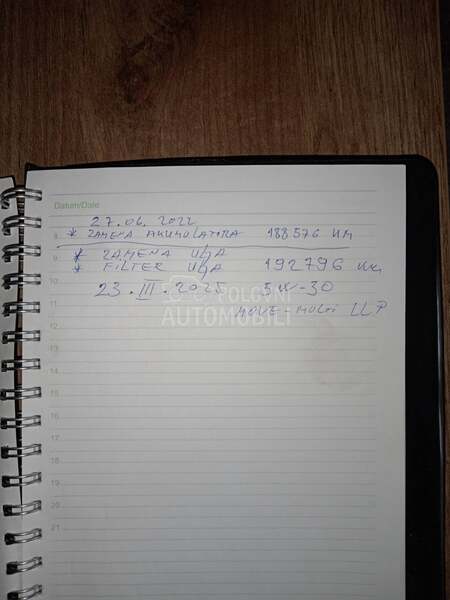 Datum/Date
27.06.2022
8 * ZAMENA AKUMULATORA 188576 KM
9 * ZAMENA ULJA
10 * FILTER ULJA 192796 KM
11 23.III.2025 5W-30
POLOVNI
AUTOMOBILI
LLP
12
13
14
15
16
17
18
19
20
21